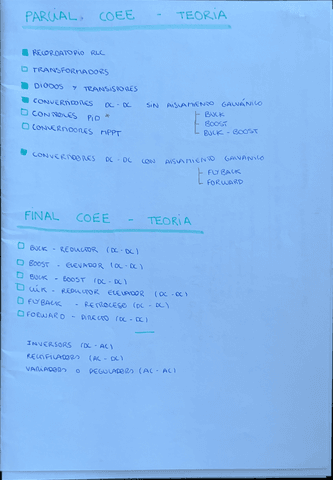 PARCIAL COEE - TEORIA
RECORDATORIO RLC
TRANSFORMADORS
DIODOS Y TRANSISTORES
CONVERTIDORES DC-DC SIN AISLAMIENTO GALVÁNICO
BUCK
CONTROLES PID *
BOOST
CONVERTIDORES MPPT
BUCK - BOOST
CONVERTIDORES DC-DC CON AISLAMIENTO GALVANICO
FLYBACK
FORWARD
FINAL COEE - TEORIA
BUCK - REDUCTOR (DC-DC)
BOOST - ELEVADOR (DC-DC)
BUCK - BOOST (DC-DC)
CUK - REDUCTOR ELEVADOR (DC-DC)
FLYBACK - RETROCESO (DC-DC)
FORWARD - DIRECTO (DC-DC)
INVERSORS (DC-AC)
RECTIFICADORS (AC-DC)
VARIADORS O REGULADORS (AC-AC)